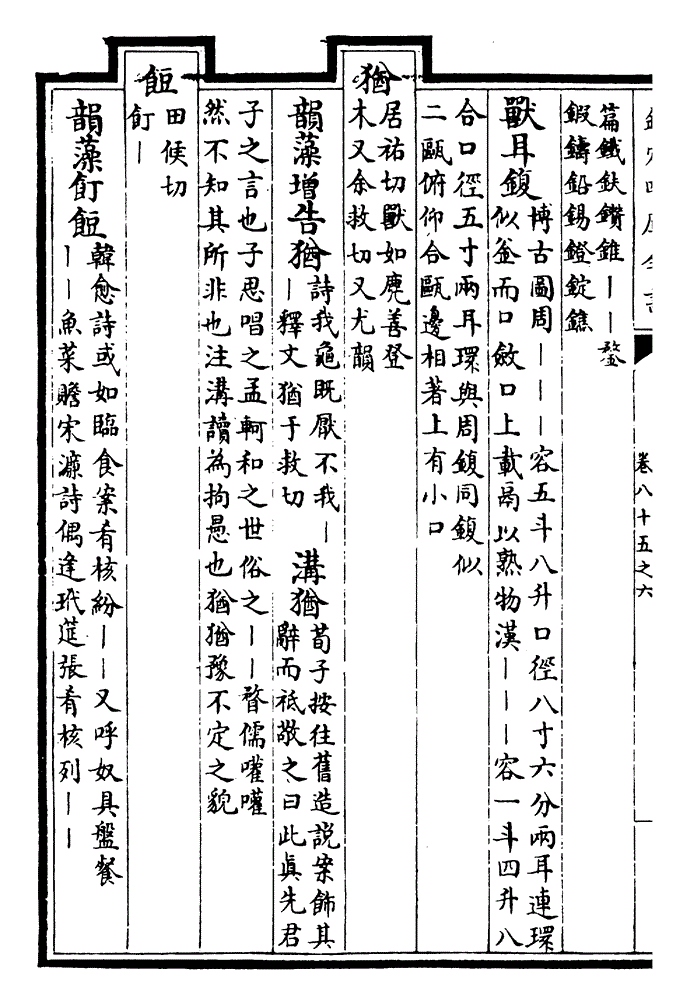 欽定四庫全書
卷八十五之六
篇鐵鈇鑽錐丨丨鍪
鍜鑄鉛錫鐙錠鐎
獸耳鍑博古圖周丨丨丨容五斗八升口徑八寸六分兩耳連環
似釜而口斂口上載鬲以熟物漢丨丨丨容一斗四升八
合口徑五寸兩耳環與周鍑同鍑似
二甌俯仰合甌邊相著上有小口
猶
居祐切獸如麂善登
木又余救切又尤韻
韻藻增告猶詩我龜既厭不我丨
丨釋文猶于救切
溝猶荀子按往舊造説案飾其
辭而祗敬之曰此真先君
子之言也子思唱之孟軻和之世俗之丨丨瞀儒嚾嚾
然不知其所非也注溝讀為拘愚也猶猶豫不定之貌
餖
田候切
飣丨
韻藻飣餖韓愈詩或如臨食案肴核紛丨丨又呼奴具盤餐
丨丨魚菜贍宋濂詩偶逢玳筵張肴核列丨丨